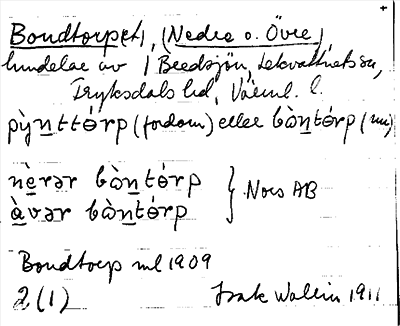 Bondtorpet, (Nedre o. Övre)
lindelar av / Bredsjön, Lekvattnets sn,
Fryksdals hd, Värml. l.
pỳnttórp (fordom) eller bòntórp (nu)
nèrər bòntórp
àvər bòntórp } Nors AB
Bondtorp ml 1909
2(1) Isak Wallin 1911